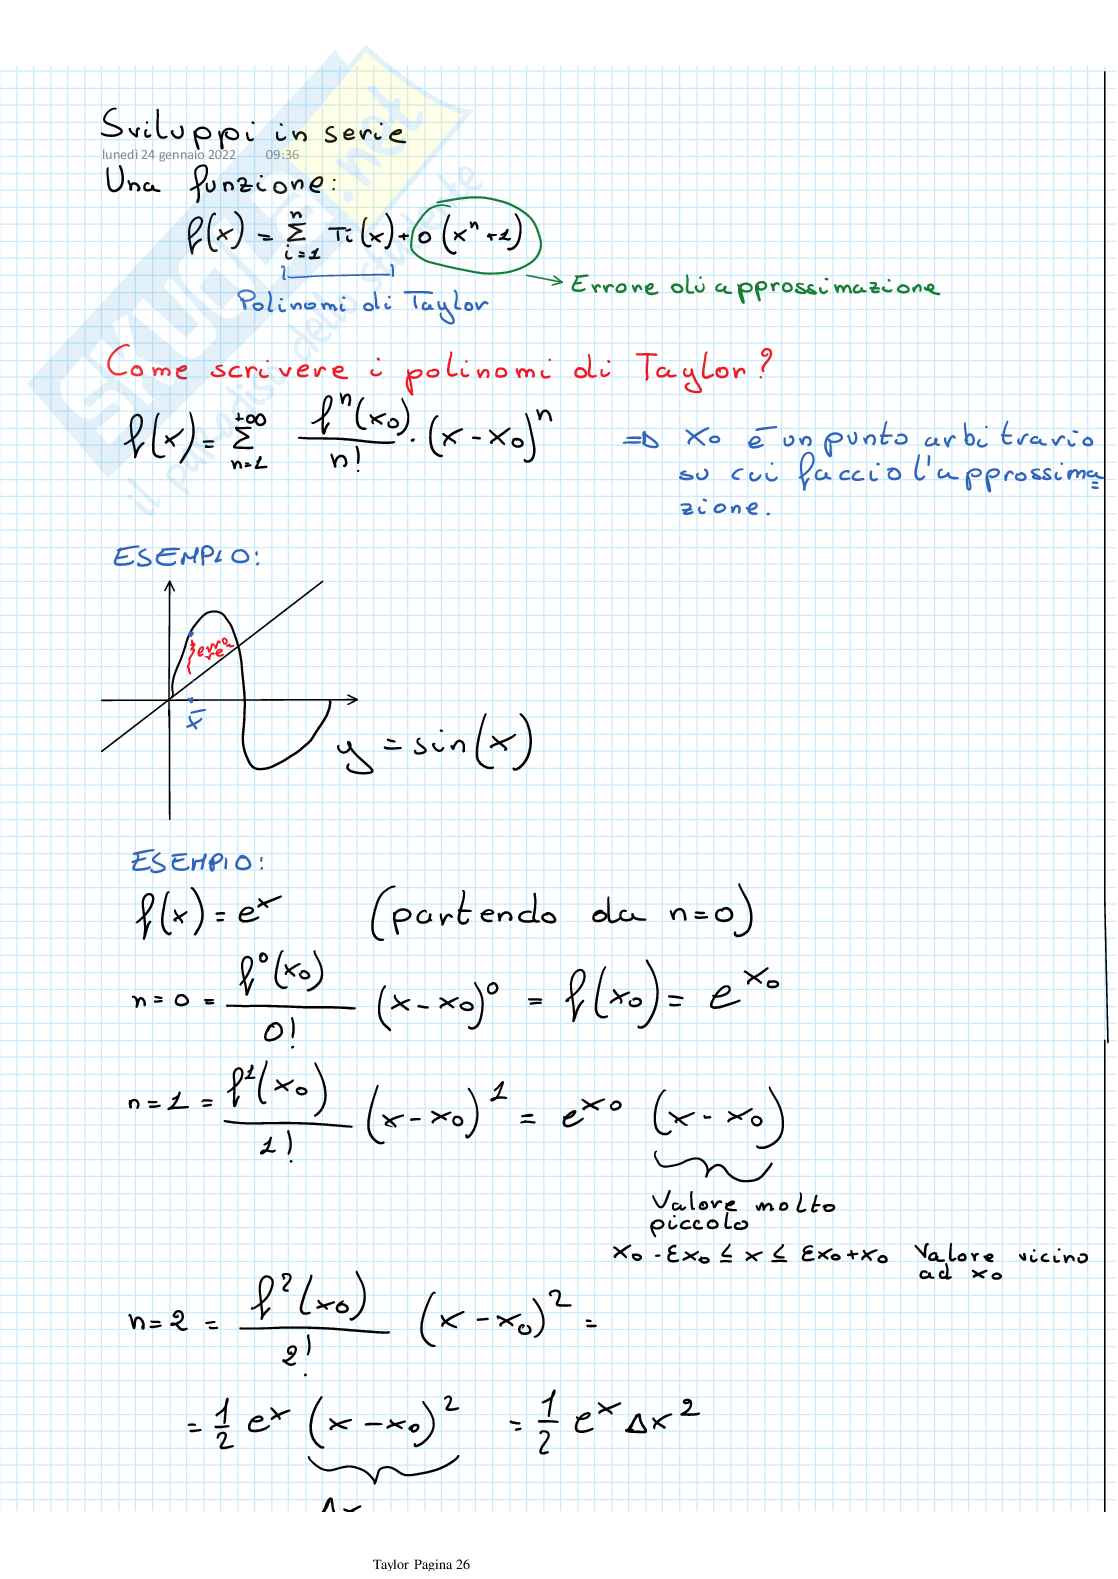 Sviluppi in serie
lunedì 24 gennaio 2022 09:36
Una funzione:
f(x) = Σ_{i=1}^{n} Ti(x) + o(x^n+1)
Polinomi di Taylor
→ Errore di approssimazione
Come scrivere i polinomi di Taylor?
f(x) = Σ_{n=1}^{+∞} f^n(x₀)/n! · (x-x₀)^n
⇒ x₀ è un punto arbitrario
su cui faccio l'approssima=
zione.
ESEMPIO:
errore
x̄
y = sin(x)
ESEMPIO:
f(x) = e^x (partendo da n=0)
n=0 = f^0(x₀)/0! (x-x₀)^0 = f(x₀) = e^{x₀}
n=1 = f^1(x₀)/1! (x-x₀)^1 = e^{x₀} (x-x₀)
Valore molto
piccolo
x₀ - εx₀ ≤ x ≤ εx₀+x₀ Valore vicino
ad x₀
n=2 = f^2(x₀)/2! (x-x₀)^2 =
= 1/2 e^x (x-x₀)^2 = 1/2 e^x Δx^2
Δx
Taylor Pagina 26
skuola.net
il paradiso dello studente